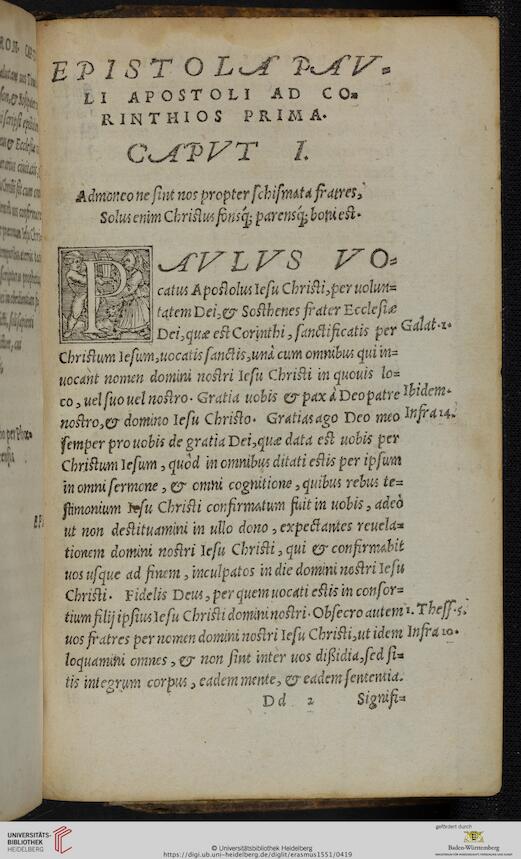 EPISTOLA PAV=
LI APOSTOLI AD CO=
RINTHIOS PRIMA.
CAPVT I.
Admoneo ne sint nos propter schismata fratres,
Solus enim Christus fonsq́; parensq́; boni est.
PAVLVS VO=
catus Apostolus Iesu Christi, per uolun=
tatem Dei, & Sosthenes frater Ecclesiæ
Dei, quæ est Corinthi, sanctificatis per Galat. 1.
Christum Iesum, uocatis sanctis, unà cum omnibus qui in=
uocant nomen domini nostri Iesu Christi in quouis lo=
co, uel suo uel nostro. Gratia uobis & pax à Deo patre Ibidem.
nostro, & domino Iesu Christo. Gratias ago Deo meo Infra 14.
semper pro uobis de gratia Dei, quæ data est uobis per
Christum Iesum, quòd in omnibus ditati estis per ipsum
in omni sermone, & omni cognitione, quibus rebus te=
stimonium Iesu Christi confirmatum fuit in uobis, adeò
ut non destituamini in ullo dono, expectantes reuela=
tionem domini nostri Iesu Christi, qui & confirmabit
uos usque ad finem, inculpatos in die domini nostri Iesu
Christi. Fidelis Deus, per quem uocati estis in consor=
tium filij ipsius Iesu Christi domini nostri. Obsecro autem 1. Thess. 5.
uos fratres per nomen domini nostri Iesu Christi, ut idem Infra 10.
loquamini omnes, & non sint inter uos dißidia, sed si=
tis integrum corpus, eadem mente, & eadem sententia.
Dd 2 Signifi=
UNIVERSITÄTS-
BIBLIOTHEK
HEIDELBERG
© Universitätsbibliothek Heidelberg
https://digi.ub.uni-heidelberg.de/diglit/erasmus1551/0419
gefördert durch
Baden-Württemberg